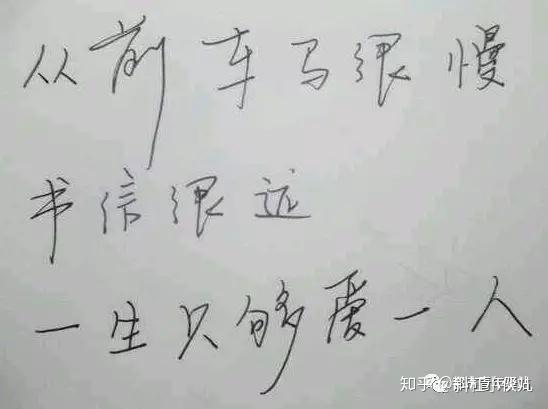 从前车马很慢
书信很远
一生只够爱一人
知乎